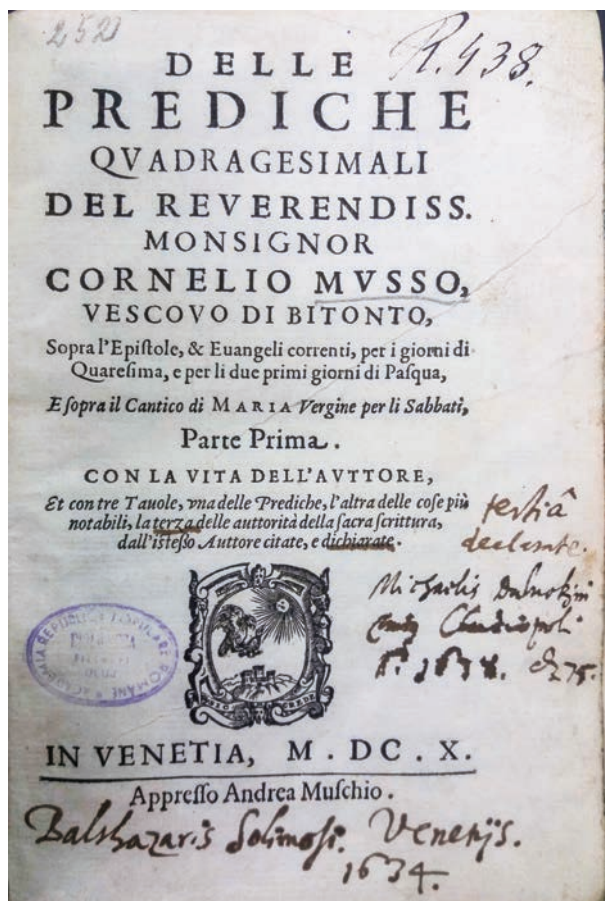 252
R. 438.
DELLE
PREDICHE
QVADRAGESIMALI
DEL REVERENDISS.
MONSIGNOR
CORNELIO MVSSO,
VESCOVO DI BITONTO,
Sopra l'Epiſtole, & Euangeli correnti, per i giorni di
Quareſima, e per li due primi giorni di Paſqua,
E ſopra il Cantico di MARIA Vergine per li Sabbati,
Parte Prima.
CON LA VITA DELL'AVTTORE,
Et con tre Tauole, vna delle Prediche, l'altra delle coſe più
notabili, la terza delle auttorità della ſacra ſcrittura,
dall'iſteſſo Auttore citate, e dichiarate.
tertiâ
Michaelis
1638.
ACADEMIA REPUBLICII POPULARE ROMÂNE
IN VENETIA, M. DC. X.
Appreſſo Andrea Muſchio.
Balthazaris Solimosi. Venetijs.
1634.